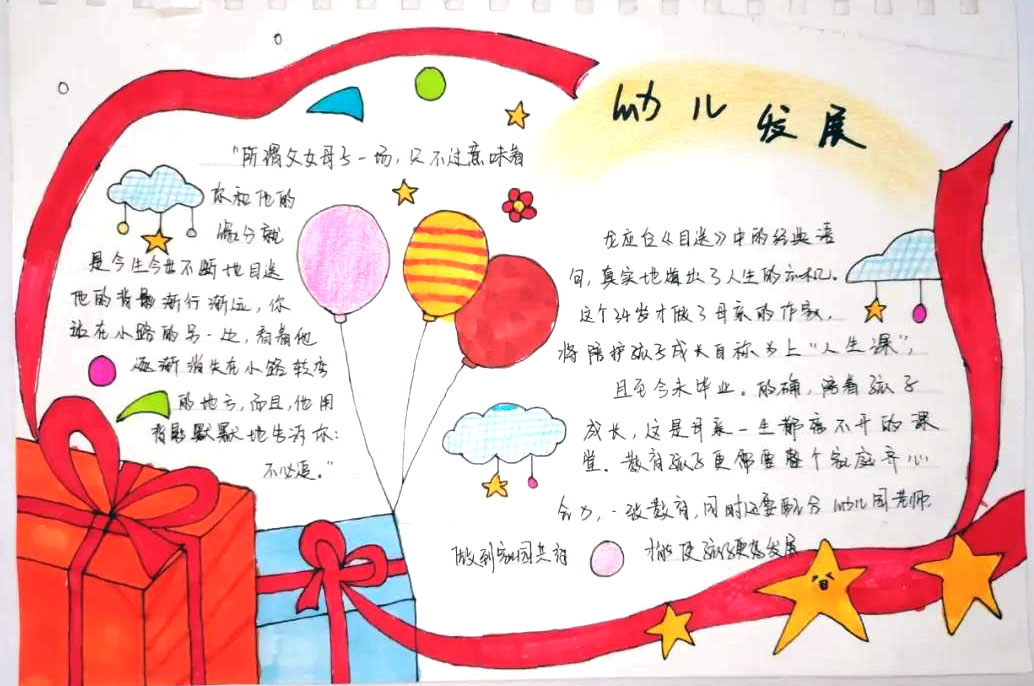 幼儿发展
"所谓父女母子一场，只不过意味着
你和他的
缘分就
是今生今世不断地目送
他的背影渐行渐远，你
站在小路的另一边，看着他
逐渐消失在小路转弯
的地方，而且，他用
背影默默地告诉你：
不必追。"
龙应台《目送》中的经典语
句，真实地道出了人生的
这个34岁才做了母亲的作家，
将陪护孩子成长自称为上"人生课"，
且至今未毕业。的确，陪着孩子
成长，这是母亲一生都离不开的课
堂。教育孩子更需要整个家庭齐心
合力，一致教育，同时还要配合幼儿园老师，
做到家园共育
才能使孩子更好发展